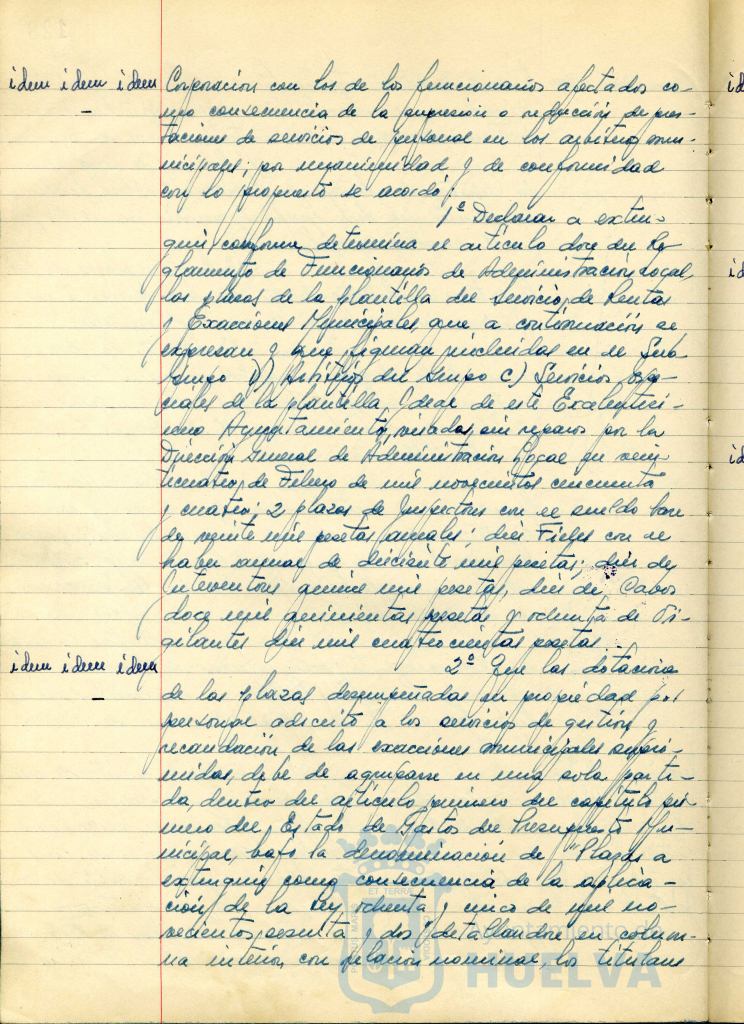 idem idem idem
Corporación con los de los funcionarios afectados co-
mo consecuencia de la supresión o reducción de pres-
taciones de servicios de personal en los arbitrios mu-
nicipales; por unanimidad y de conformidad
con lo propuesto se acordó:
1º Declarar a extin-
guir conforme determina el artículo doce del Re-
glamento de Funcionarios de Administración Local,
las plazas de la plantilla del Servicio de Rentas
y Exacciones Municipales que a continuación se
expresan y que figuran incluidas en el Sub-
Grupo D) Arbitrios del Grupo C) Servicios Espe-
ciales de la plantilla Ideal de este Excelentísi-
mo Ayuntamiento, visadas sin reparos por la
Dirección General de Administración Local en vein-
ticuatro de Febrero de mil novecientos cincuenta
y cuatro; 2 plazas de Inspectores con el sueldo base
de veinte mil pesetas anuales; diez Fieles con el
haber anual de diecisiete mil pesetas; diez de
Interventores quince mil pesetas, diez de Cabos
doce mil quinientas pesetas y ochenta de Vi-
gilantes diez mil cuatrocientas pesetas.
idem idem idem
2º Que las dotaciones
de las plazas desempeñadas en propiedad por
personal adscrito a los servicios de gestión y
recaudación de las exacciones municipales supri-
midas, debe de agruparse en una sola parti-
da, dentro del artículo primero del capítulo pri-
mero del Estado de Gastos del Presupuesto Mu-
nicipal, bajo la denominación de "Plazas a
extinguir como consecuencia de la aplica-
ción de la Ley ochenta y cinco de mil no-
vecientos sesenta y dos" detallándose en colum-
na interior, con relación nominal, los titulares
Ayuntamiento de
HUELVA